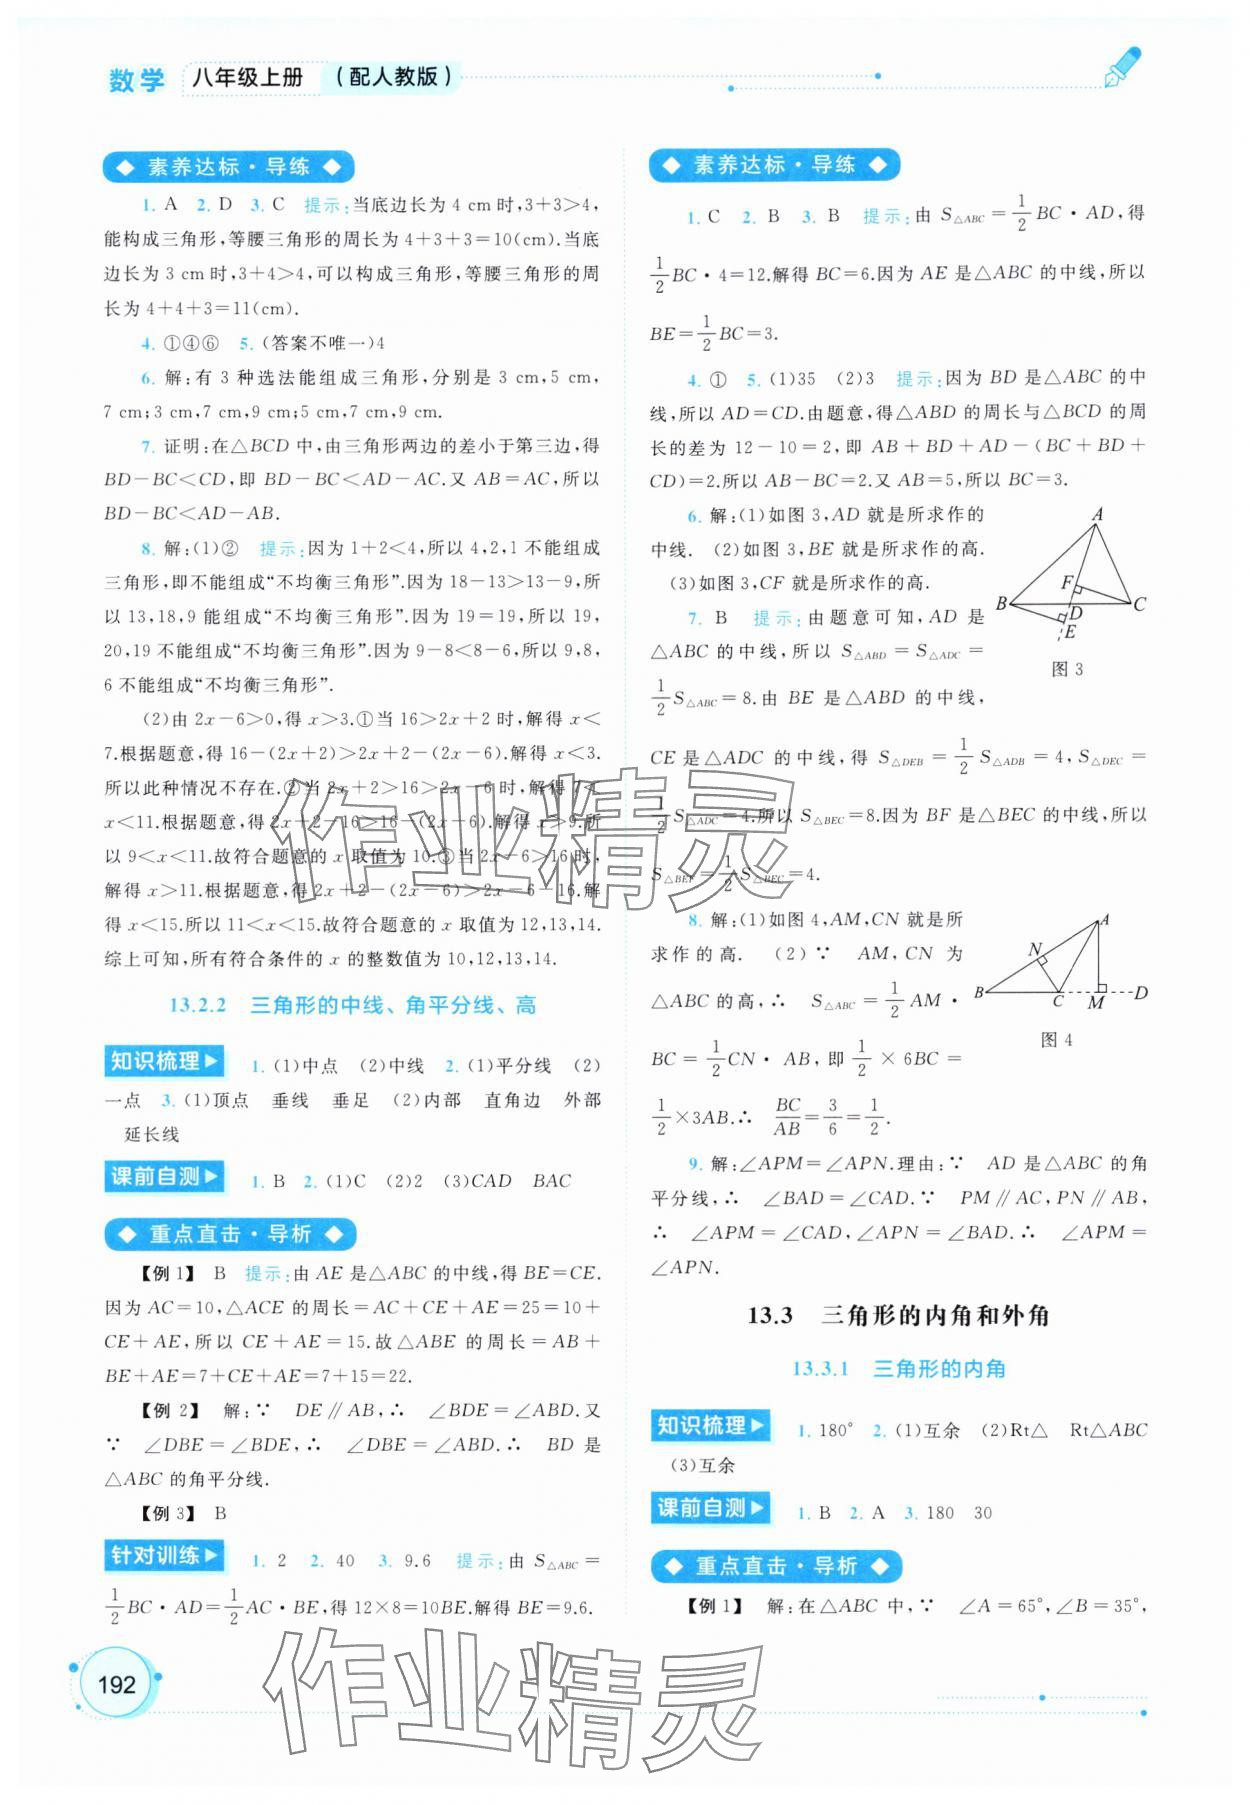 数学 八年级上册 （配人教版）
◆ 素养达标·导练 ◆
1. A 2. D 3. C 提示:当底边长为 4 cm时,3+3>4,
能构成三角形,等腰三角形的周长为4+3+3=10(cm).当底
边长为 3 cm时,3+4>4,可以构成三角形,等腰三角形的周
长为4+4+3=11(cm).
4. ①④⑥ 5. (答案不唯一)4
6. 解:有 3 种选法能组成三角形,分别是 3 cm,5 cm,
7 cm;3 cm,7 cm,9 cm;5 cm,7 cm,9 cm.
7. 证明:在△BCD 中,由三角形两边的差小于第三边,得
BD-BC<CD,即 BD-BC<AD-AC.又 AB=AC,所以
BD-BC<AD-AB.
8. 解:(1)② 提示:因为1+2<4,所以 4,2,1 不能组成
三角形,即不能组成“不均衡三角形”.因为 18-13>13-9,所
以 13,18,9 能组成“不均衡三角形”.因为 19=19,所以 19,
20,19 不能组成“不均衡三角形”.因为 9-8<8-6,所以9,8,
6 不能组成“不均衡三角形”.
(2)由 2x-6>0,得 x>3.①当 16>2x+2 时,解得 x<
7.根据题意,得 16-(2x+2)>2x+2-(2x-6).解得 x<3.
所以此种情况不存在.②当 2x+2>16>2x-6 时,解得 7<
x<11.根据题意,得 2x+2-16>16-(2x-6).解得 x>9.所
以 9<x<11.故符合题意的 x 取值为 10.③当 2x-6>16时,
解得 x>11.根据题意,得 2x+2-(2x-6)>2x-6-16.解
得 x<15.所以 11<x<15.故符合题意的 x 取值为 12,13,14.
综上可知,所有符合条件的 x 的整数值为 10,12,13,14.
13.2.2 三角形的中线、角平分线、高
知识梳理 1. (1)中点 (2)中线 2. (1)平分线 (2)
一点 3. (1)顶点 垂线 垂足 (2)内部 直角边 外部
延长线
课前自测 1. B 2. (1)C (2)2 (3)CAD BAC
◆ 重点直击·导析 ◆
【例 1】 B 提示:由 AE 是△ABC 的中线,得 BE=CE.
因为 AC=10,△ACE 的周长=AC+CE+AE=25=10+
CE+AE,所以 CE+AE=15.故△ABE 的周长=AB+
BE+AE=7+CE+AE=7+15=22.
【例 2】 解:∵ DE∥AB,∴ ∠BDE=∠ABD.又
∵ ∠DBE=∠BDE,∴ ∠DBE=∠ABD.∴ BD 是
△ABC 的角平分线.
【例 3】 B
针对训练 1. 2 2. 40 3. 9.6 提示:由 S△ABC=
1/2 BC·AD=1/2 AC·BE,得 12×8=10BE.解得 BE=9.6.
192
◆ 素养达标·导练 ◆
1. C 2. B 3. B 提示:由 S△ABC=1/2 BC·AD,得
1/2 BC·4=12.解得 BC=6.因为 AE 是△ABC 的中线,所以
BE=1/2 BC=3.
4. ① 5. (1)35 (2)3 提示:因为 BD 是△ABC 的中
线,所以 AD=CD.由题意,得△ABD 的周长与△BCD 的周
长的差为 12-10=2,即 AB+BD+AD-(BC+BD+
CD)=2.所以 AB-BC=2.又 AB=5,所以 BC=3.
6. 解:(1)如图 3,AD 就是所求作的
中线. (2)如图 3,BE 就是所求作的高.
(3)如图 3,CF 就是所求作的高.
A
F
B
D
C
E
图 3
7. B 提示:由题意可知,AD 是
△ABC 的中线,所以 S△ABD=S△ADC=
1/2 S△ABC=8.由 BE 是△ABD 的中线,
CE 是△ADC 的中线,得 S△DEB=1/2 S△ADB=4,S△DEC=
1/2 S△ADC=4.所以 S△BEC=8.因为 BF 是△BEC 的中线,所以
S△BEF=1/2 S△BEC=4.
8. 解:(1)如图 4,AM,CN 就是所
求作的高. (2)∵ AM,CN 为
△ABC 的高,∴ S△ABC=1/2 AM·
BC=1/2 CN·AB,即 1/2×6BC=
1/2×3AB.∴ BC/AB=3/6=1/2.
A
N
B
C
M
D
图 4
9. 解:∠APM=∠APN.理由:∵ AD 是△ABC 的角
平分线,∴ ∠BAD=∠CAD.∵ PM∥AC,PN∥AB,
∴ ∠APM=∠CAD,∠APN=∠BAD.∴ ∠APM=
∠APN.
13.3 三角形的内角和外角
13.3.1 三角形的内角
知识梳理 1. 180° 2. (1)互余 (2)Rt△ Rt△ABC
(3)互余
课前自测 1. B 2. A 3. 180 30
◆ 重点直击·导析 ◆
【例 1】 解:在△ABC 中,∵ ∠A=65°,∠B=35°,
作业精灵
作业精灵